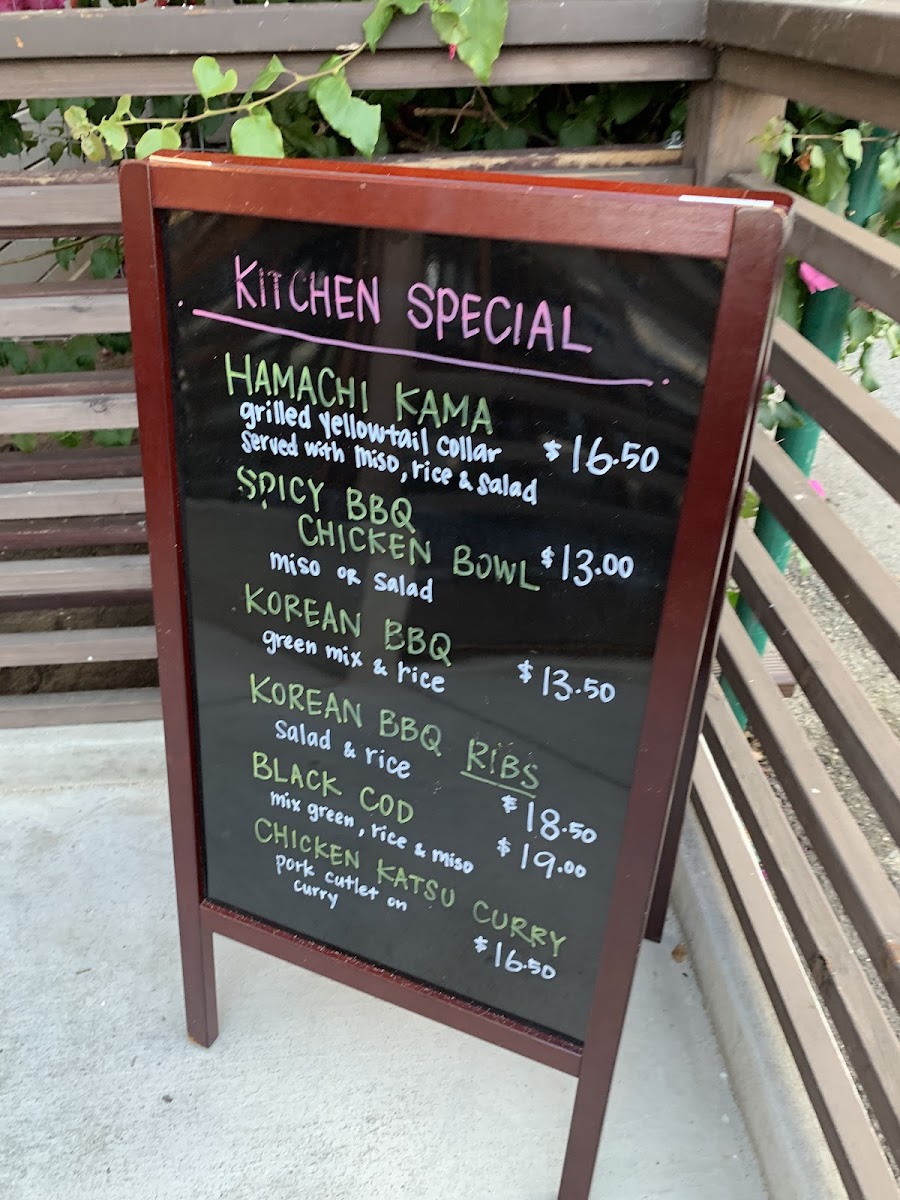 KITCHEN SPECIAL
HAMACHI KAMA
grilled yellowtail collar
served with miso, rice & salad
$16.50
SPICY BBQ
CHICKEN BOWL $13.00
miso OR salad
KOREAN BBQ
green mix & rice
$13.50
KOREAN BBQ RIBS
salad & rice
$18.50
BLACK COD
mix green, rice & miso
$19.00
CHICKEN KATSU CURRY
pork cutlet on
curry
$16.50